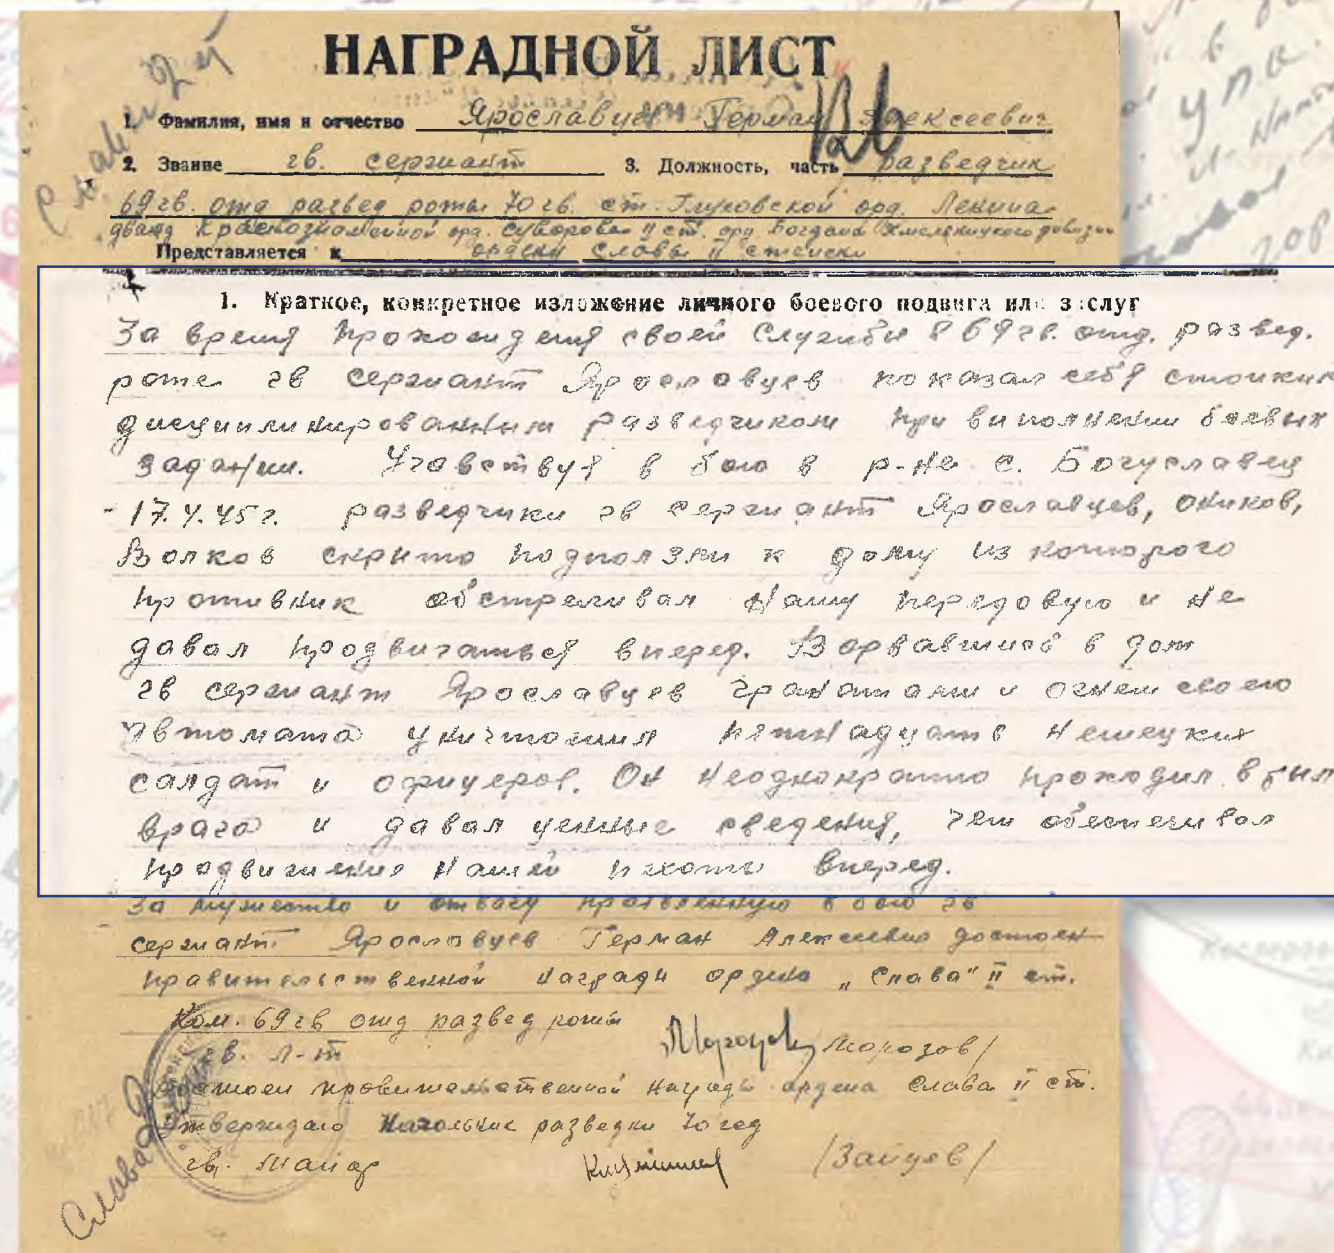 НАГРАДНОЙ ЛИСТ
1. Фамилия, имя и отчество Ярославцев Герман Алексеевич
2. Звание гв. сержант 3. Должность, часть разведчик
69 гв. отд развед роты 70 гв. ст. Глуховской орд. Ленина
дважд Краснознаменной орд. Суворова II ст. орд. Богдана Хмельницкого дивизии
Представляется к ордену Славы II степени
1. Краткое, конкретное изложение личного боевого подвига или заслуг
За время прохождения своей службы в 69 гв. отд. развед.
роте гв сержант Ярославцев показал себя стойким
дисциплинированным разведчиком при виполнении боевых
задании. Учавствуя в бою в р-не с. Богуславец
-17.4.45г. разведчики гв сержант Ярославцев, Оников,
Волков скрыто подползли к дому из которого
противник обстреливал нашу передовую и не
давал продвигаться вперед. Ворвавшись в дом
гв сержант Ярославцев гранатами и огнем своего
автомата уничтожил пятнадцать немецких
салдат и офицеров. Он неоднократно проходил в тыл
врага и давал ценные сведения, чем обеспечивал
продвижения нашей пехоты вперед.
За мужество и отвагу проявленную в бою гв
сержант Ярославцев Герман Алексеевич достоен
правительственной награды ордена „Слава" II ст.
Ком. 69 гв отд развед роты
гв. л-т /Морозов/
Достоен правительственной награды ордена Слава II ст.
Утверждаю Начальник разведки 70 гсд
гв. Майор /Зайцев/
Слава